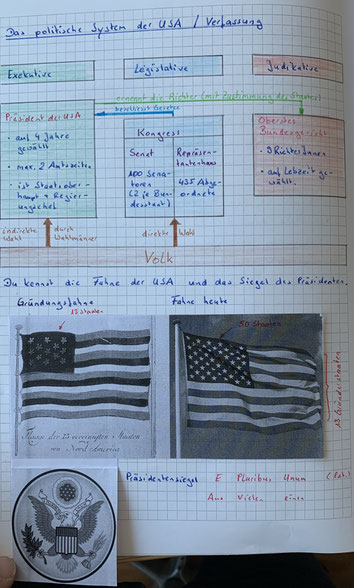 Das politische System der USA / Verfassung
Exekutive
Legislative
Judikative
ernennt die Richter (mit Zustimmung des Senates)
beschliesst Gesetze
Präsident der USA
• auf 4 Jahre gewählt
• max. 2 Amtszeiten
• ist Staatsober-
haupt + Regier-
ungschef
Kongress
Senat
100 Sena-
toren
(2 je Bun-
desstaat)
Repräsen-
tantenhaus
435 Abge-
ordnete
Oberstes
Bundesgericht
• 9 RichterInnen
• auf Lebzeit ge-
wählt.
indirekte Wahl
durch Wahlmänner
direkte Wahl
Volk
Du kennst die Fahne der USA und das Siegel des Präsidenten.
Gründungsfahne
Fahne heute
13 Staaten
50 Staaten
13 Gründerstaaten
Flagge der 13 vereinigten Staaten
von Nord-America
Präsidentensiegel
E Pluribus Unum (Lat.)
Aus vielen eines